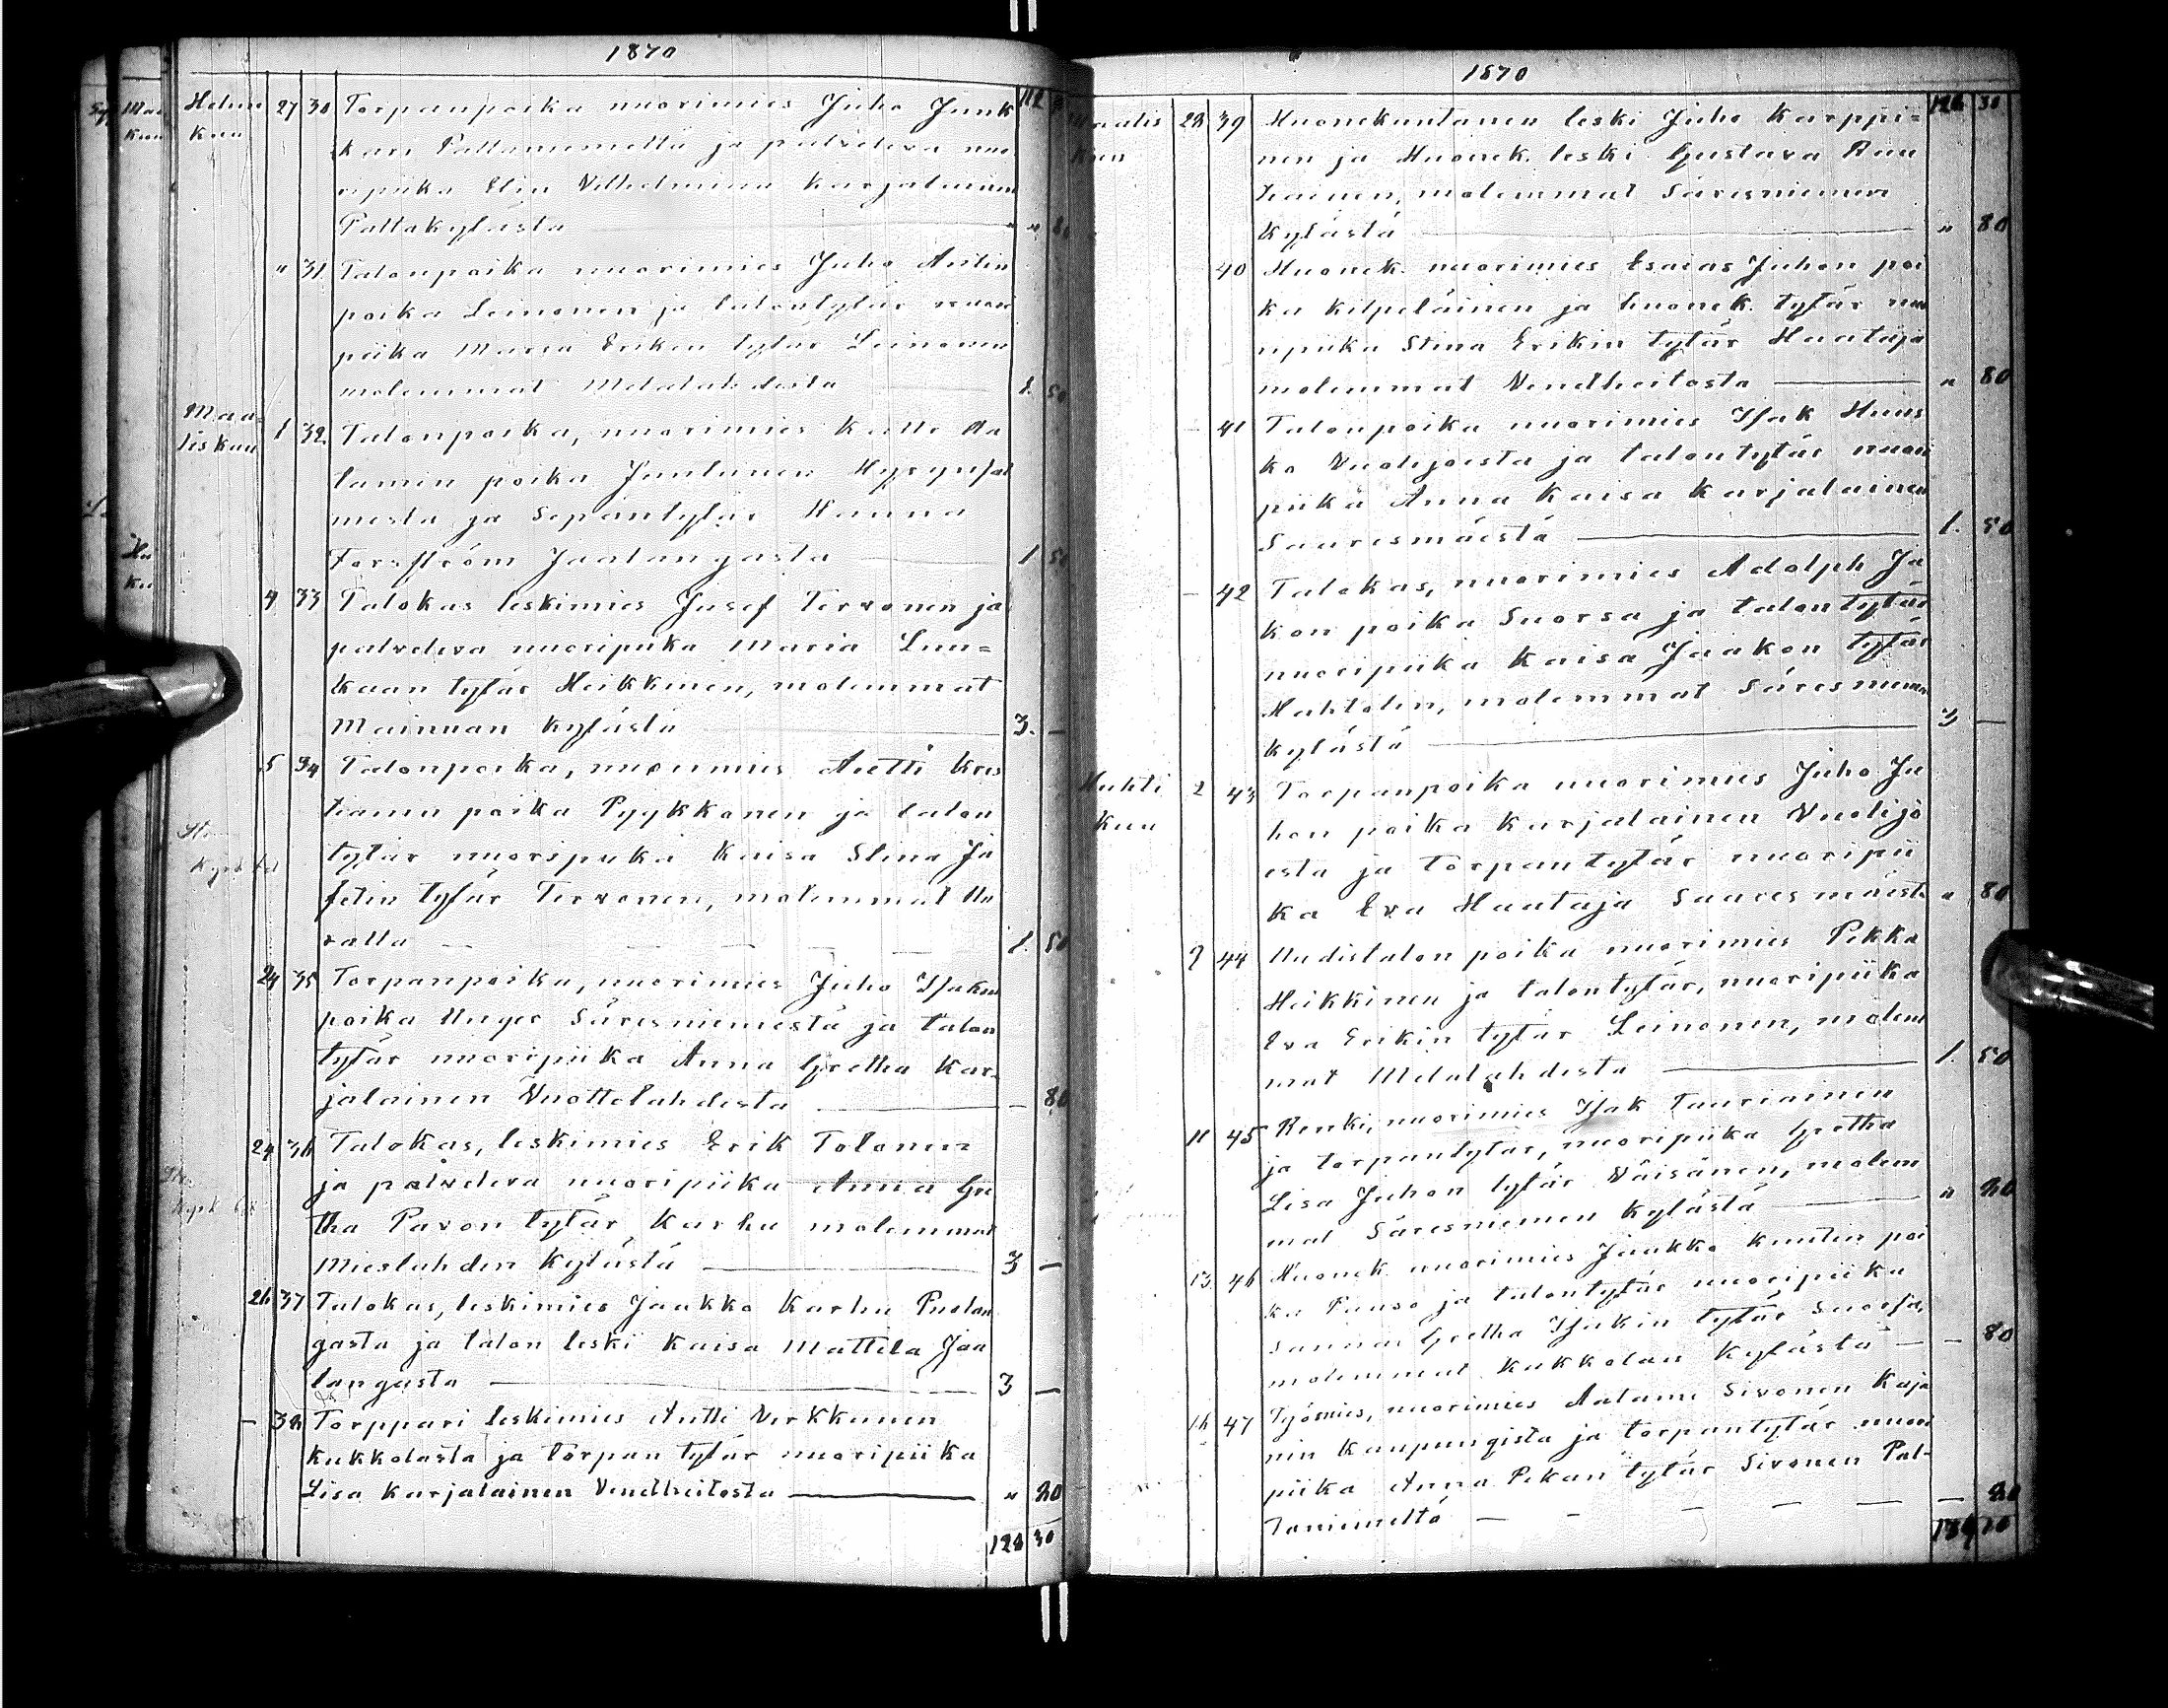 1870
Helmi 27 30 Torpanpoika nuorimies Juho Junk 112
kuu kari Paltamiemeltä ja palveleva nuo
ripiika Elin Vilhelmiina Karjalainen
Paltakylästä " 80
" 31. Talonpoika nuorimies Juho Antin
poika Leinonen ja talontytär nuori
piika Maria Erikin tytär Leinonen
molemmat Melalahdesta 1. 50
Maa-
liskuu 1 32. Talonpoika, nuorimies Kalle Aa
tamin poika Juntunen Hyrynsal
mesta ja Sepäntytär Hanna
Forsström Jaalangasta 1 50
4 33 Talokas leskimies Jusef Tervonen ja
palveleva nuoripiika Maria Luu=
kaan tytär Heikkinen, molemmat
Mainuan kylästä 3. —
5 34 Talonpoika, nuorimies Antti Kris
tianin poika Pyykkonen ja talon
tytär nuoripiika Kaisa Stina Jo
sefin tytär Tervonen, molemmat
1. 50
24 35 Torpanpoika, nuorimies Juho Isakin
poika Säresniemestä ja talon
tytär nuoripiika Anna Gretha Kar=
jalainen Vuottolahdesta — 80
24 36 Talokas, leskimies Erik Tolonen
ja palveleva nuoripiika Anna Gre
tha Pavon tytär Karhu molemmat
Mieslahden kylästä 3 —
26 37 Talokas, leskimies Jaakko Karhu Puolan
gasta ja talon leski Kaisa Mattila Jaa
langasta 3 —
— 38 Torppari leskimies Antti Verkkunen
Kukkolasta ja torpan tytär nuoripiika
Lisa Karjalainen Venetheitosta " 80
128 30
1870
Maalis 28 39 Huonekuntanen leski Juho Karppi= 128 30
kuun nen ja Huonek. leski Gustava Rau
tiainen, molemmat Säresniemen
kylästä " 80
40 Huonek. nuorimies Esaias Juhon poi
ka Kilpeläinen ja huonek. tytär nuo
ripiika Stina Erikin tytär Huataja
molemmat Venetheitosta " 80
— 41 Talonpoika nuorimies Isak Huus
ko Vuolijoesta ja talontytär nuori
piika Anna Kaisa Karjalainen
Saaresmäestä 1. 50
— 42 Talokas, nuorimies Adolph Ja
kon poika Suorsa ja talontytär
nuoripiika Kaisa Jaakon tytär
Huhtolin, molemmat Säresniemen
kylästä 3 —
Huhti 2 43 Torpanpoika nuorimies Juho Ju
kuu hon poika Karjalainen Vuolijo
esta ja torpantytär nuoripii
ka Eva Huataja Saaresmäestä " 80
9 44 Uudistalon poika nuorimies Pekka
Heikkinen ja talontytär, nuoripiika
Eva Erikin tytär Leinonen, molem
mat Melalahdesta 1. 50
11 45 Renki, nuorimies Isak Tauriainen
ja torpantytär, nuoripiika Gretha
Lisa Juhon tytär Väisänen, molem
mat Säresniemen kylästä " 80
13. 46 Huonek. nuorimies Jaakko Knutin poi
ka Panso ja talontytär nuoripiika
Sanna Gretha Isakin tytär Suorsa,
molemmat Kukkolan kylästä — — 80
16 47 Työmies, nuorimies Aatami Sivonen Kaja
nin kaupungista ja torpantytär nuori
piika Anna Pekan tytär Sivonen Pal-
taniemeltä — 80